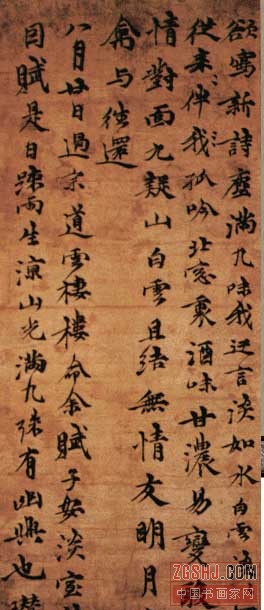 欲寫新詩塵滿几味我迂言淡如水白雲
從来伴我孤吟北窓裏酒味甘濃易變
情對面九疑山白雲且結無情友明月
与往還
八月廿日過宗道雲棲樓命余賦子安淡室
因賦是日疎雨生涼山光滿几殊有幽興也
ZGSHJ.COM
中国书画家网